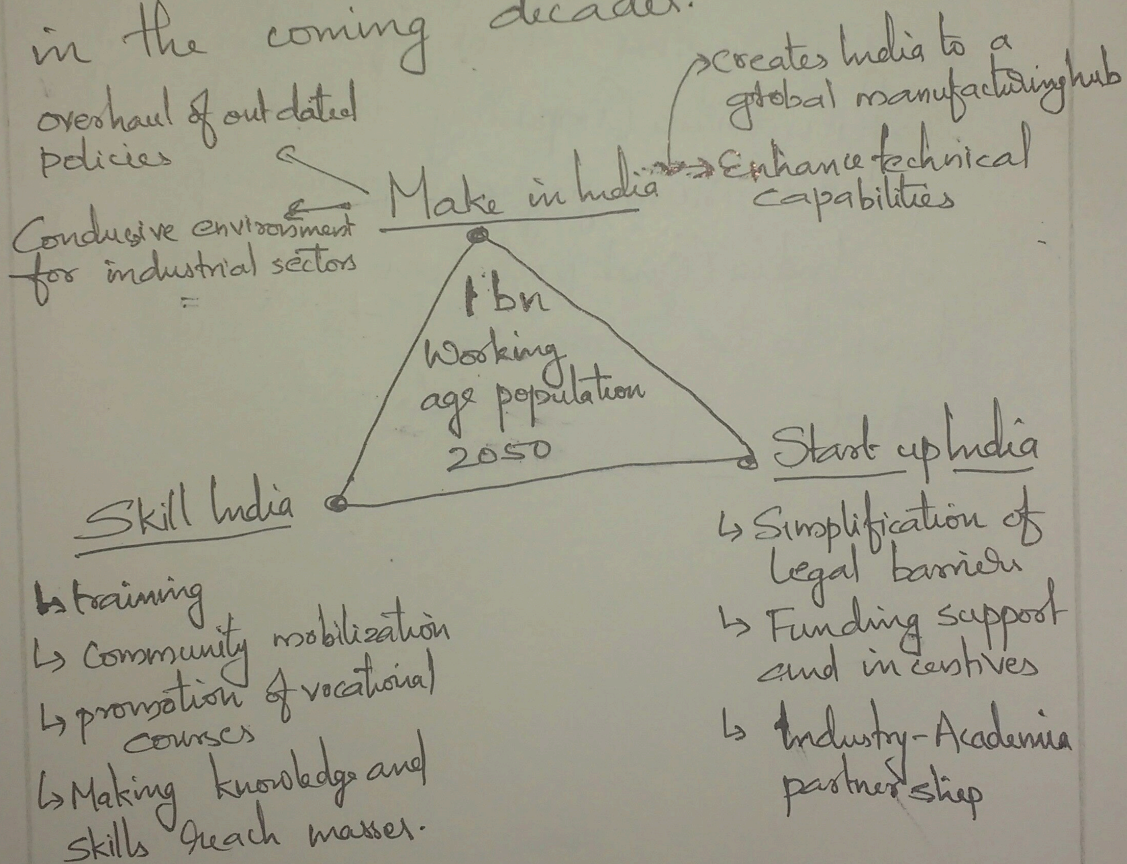 in the coming decades.
overhaul of outdated
policies
Conducive environment
for industrial sectors
Make in India
creates India to a
global manufacturing hub
Enhance technical
capabilities
1 bn
Working
age population
2050
Skill India
training
Community mobilization
promotion of vocational
courses
Making knowledge and
skills reach masses.
Start up India
Simplification of
legal barriers
Funding support
and incentives
Industry-Academia
partnership